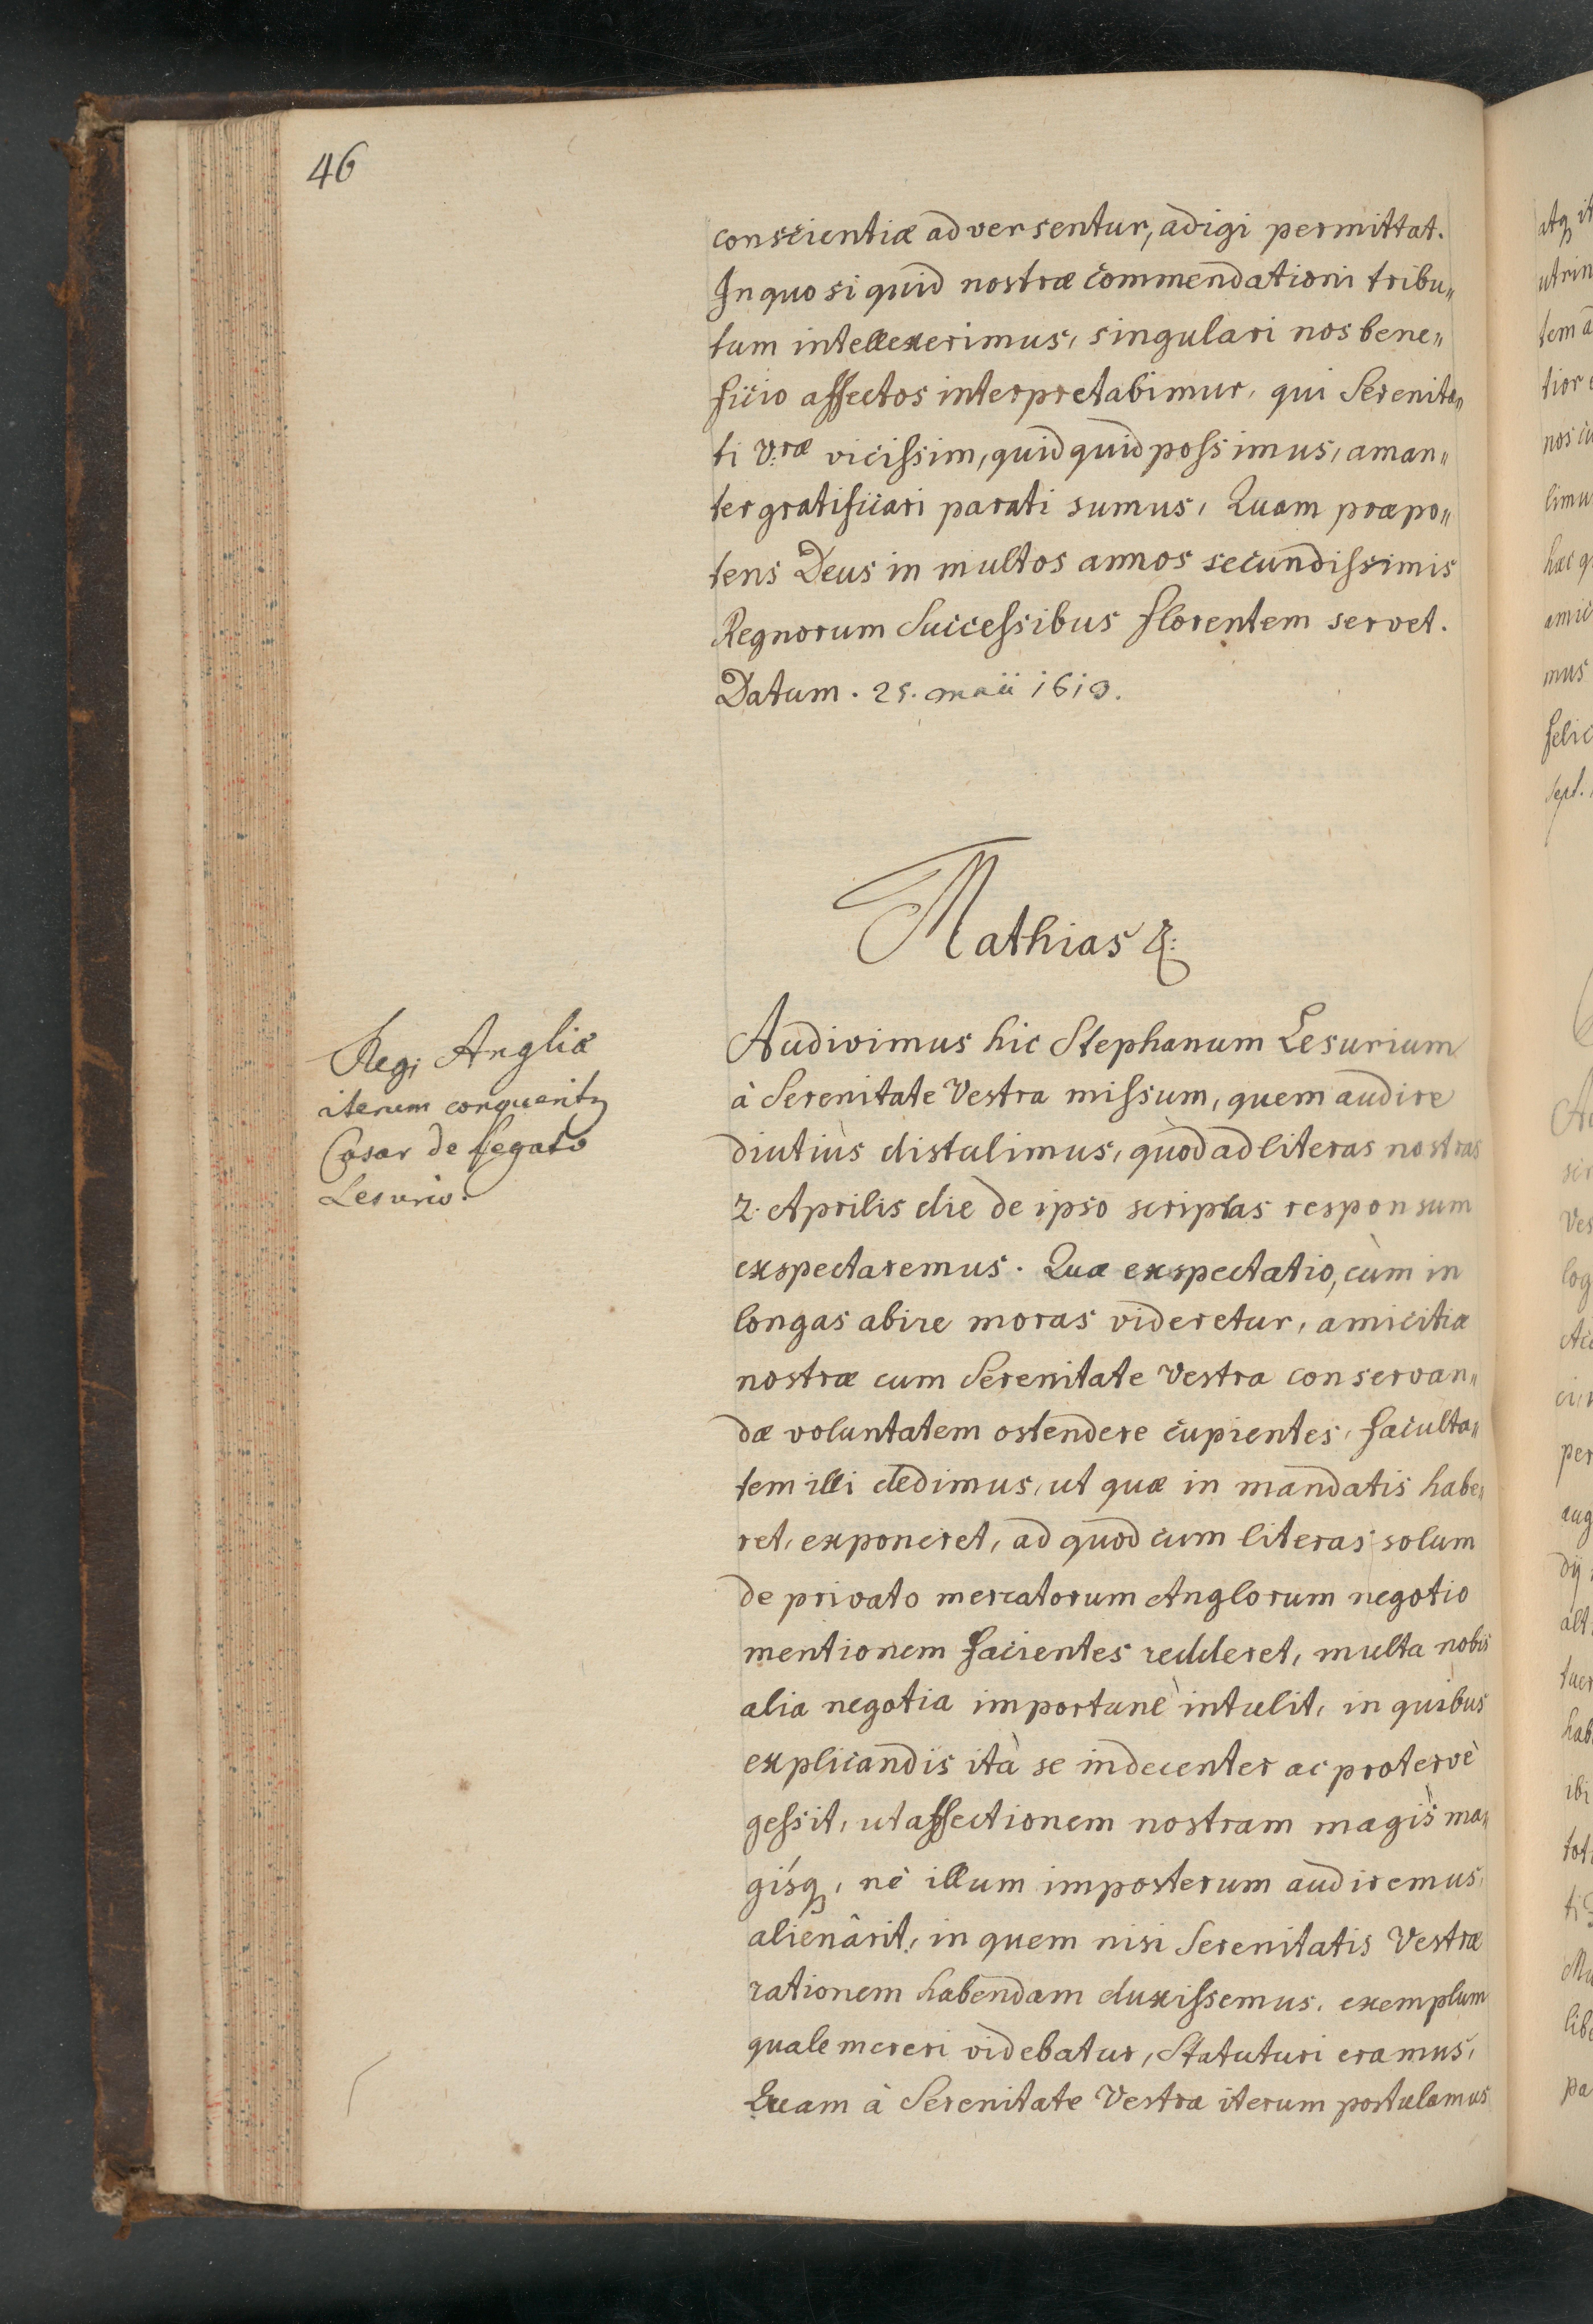 46
conscientiæ adversentur, adigi permittat.
In quo si quid nostræ commendationi tribu„
tum intellexerimus, singulari nos bene„
ficio affectos interpretabimur, qui Serenita„
ti V:ræ vicissim, quidquid possimus, aman„
ter gratificari parati sumus, Quam præpo„
tens Deus in multos annos secundissimis
Regnorum Successibus florentem servet.
Datum. 25. maii 1613.
Mathias &:
Regi Angliæ
iterum conquerit
Cæsar de Legato
Lesurio.
Audivimus hic Stephanum Lesurium
à Serenitate Vestra missum, quem audire
diutiùs distulimus, quòd ad literas nostras
2. Aprilis die de ipso scriptas responsum
exspectaremus. Quæ exspectatio, cùm in
longas abire moras videretur, amicitiæ
nostræ cum Serenitate Vestra conservan„
dæ voluntatem ostendere cupientes, faculta„
tem illi dedimus, ut quæ in mandatis habe„
ret, exponeret, ad quod cum literas solum
de privato mercatorum Anglorum negotio
mentionem facientes redderet, multa nobis
alia negotia importunè intulit, in quibus
explicandis ità se indecenter ac protervè
gessit, ut affectionem nostram magis ma„
gisq, nè illum imposterum audiremus,
alienârit, in quem nisi Serenitatis Vestræ
rationem habendam duxissemus, exemplum
quale mereri videbatur, Statuturi eramus,
Quam à Serenitate Vestra iterum postulamus